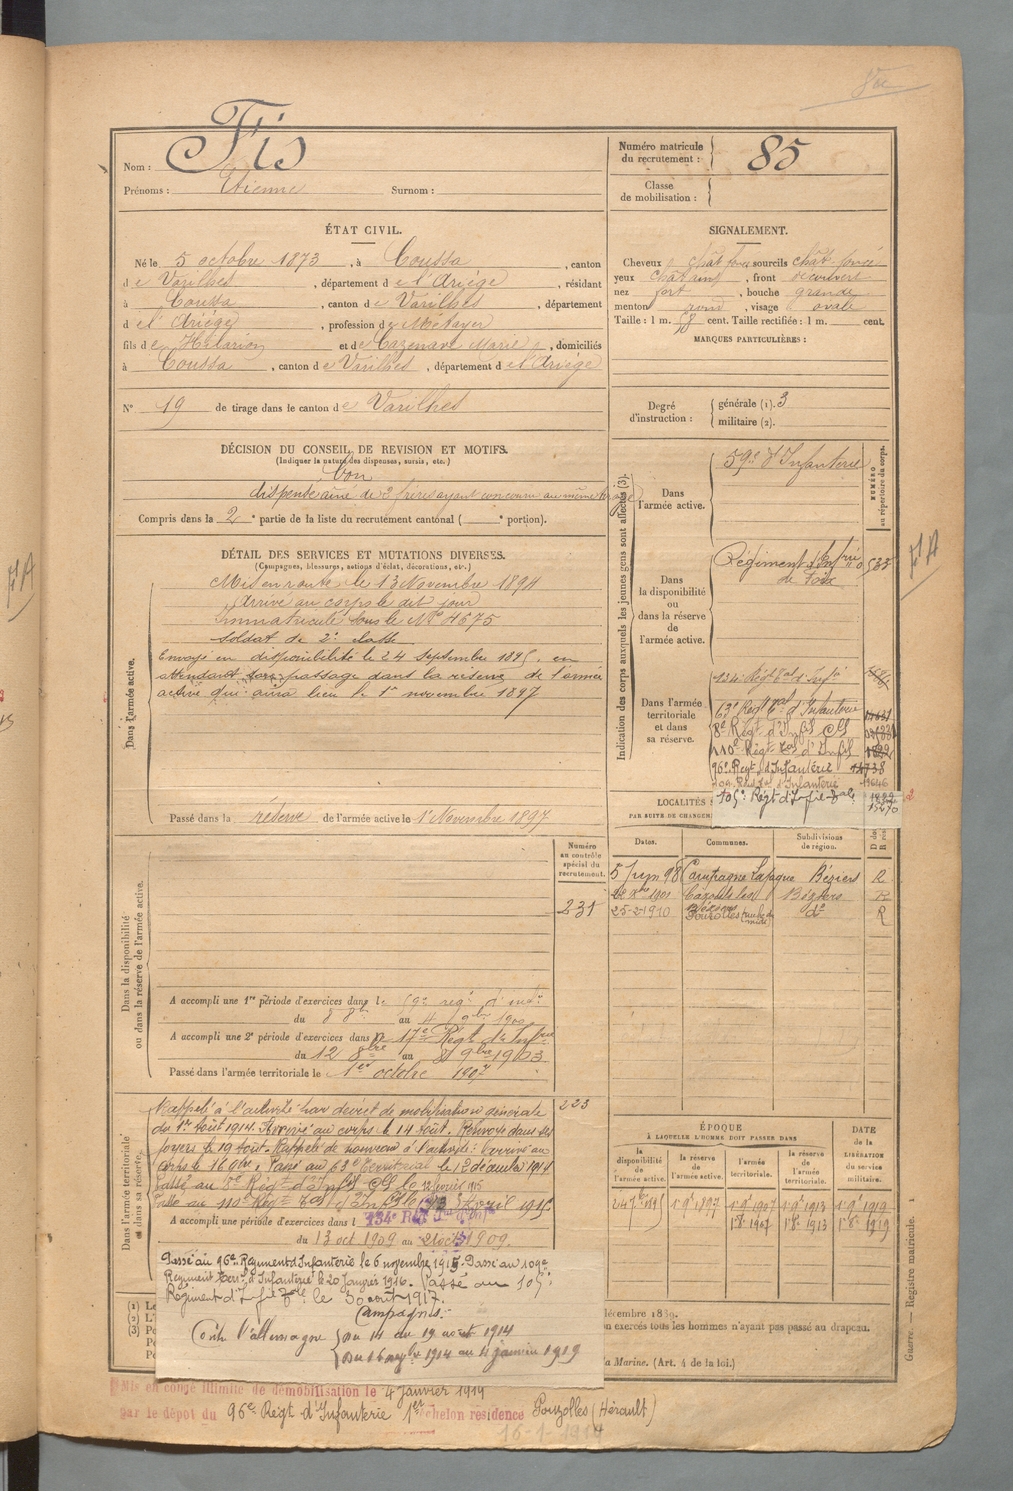 Nom : Fis
Prénoms : Etienne Surnom :
Numéro matricule
du recrutement : 85
Classe
de mobilisation :
ÉTAT CIVIL.
Né le 5 octobre 1873, à Coussa, canton
de Varilhes, département de l'Ariège, résidant
à Coussa, canton de Varilhes, département
de l'Ariège, profession de Métayer
fils de Hilarion et de Cazenave Marie, domiciliés
à Coussa, canton de Varilhes, département de l'Ariège
N° 19 de tirage dans le canton de Varilhes
SIGNALEMENT.
Cheveux chât foncé sourcils chât foncé
yeux châtains, front découvert
nez fort, bouche grande
menton rond, visage ovale
Taille : 1 m. 58 cent. Taille rectifiée : 1 m. cent.
MARQUES PARTICULIÈRES :
Degré
d'instruction :
générale (1). 3
militaire (2).
DÉCISION DU CONSEIL DE REVISION ET MOTIFS.
(Indiquer la nature des dispenses, sursis, etc.)
Bon
dispensé aîné de 2 frères ayant concouru au même tirage
Compris dans la 2e partie de la liste du recrutement cantonal ( e portion).
DÉTAIL DES SERVICES ET MUTATIONS DIVERSES.
(Campagnes, blessures, actions d'éclat, décorations, etc.)
Dans l'armée active.
Mis en route le 13 Novembre 1894
Arrivé au corps le dit jour
Immatriculé sous le N° 4675
soldat de 2e classe
Envoyé en disponibilité le 24 Septembre 1895, en
attendant son passage dans la réserve de l'armée
active qui aura lieu le 1er novembre 1897
Passé dans la réserve de l'armée active le 1 Novembre 1897
Indication des corps auxquels les jeunes gens sont affectés (3).
NUMÉRO
au répertoire du corps.
Dans
l'armée active.
59e d'Infanterie
Dans
la disponibilité
ou
dans la réserve
de
l'armée active.
Régiment d'Infrie
de Foix
535
Dans l'armée
territoriale
et dans
sa réserve.
134e Régt Tal d'Infie
63e Regt Tal d'Infanterie
8e Régt d'Infie Cle
110e Régt Tal d'Infie
96e Regt d'Infanterie
109e Régt Tal d'Infanterie
105e Régt d'Infie Tale
LOCALITÉS
PAR SUITE DE CHANGEM
Dates.
Communes.
Subdivisions
de région.
5 Juin 98 Campagne Lafague Béziers R
1901 Cazouls les Béziers Béziers R
25-2-1910 Pouzolles do R
Dans la disponibilité
ou dans la réserve de l'armée active.
Numéro
au contrôle
spécial du
recrutement.
231
A accompli une 1re période d'exercices dans le 59e reg. d'inf.
du 8 8bre au 4 9bre 1900
A accompli une 2e période d'exercices dans le 17e Régt d'Infrie
du 12 8bre au 8 9bre 1903
Passé dans l'armée territoriale le 1er octobre 1907
Dans l'armée territoriale
et dans sa réserve.
223
Rappelé à l'activité par décret de mobilisation générale
du 1er Août 1914. Arrivé au corps le 14 août. Renvoyé dans ses
foyers le 19 août. Rappelé de nouveau à l'activité. Arrivé au
corps le 16 9bre. Passé au 63e Territorial le 1er décembre 1914
Passé au 8e Régt d'Infie Cle le 12 avril 1915
Passé au 110e Rég Tal d'Infie le Avril 1915
A accompli une période d'exercices dans l 134e Rgt Tal d'Infie
du 13 oct 1909 au 21 oct 1909.
Passé au 96e Régiment d'Infanterie le 6 novembre 1915. Passé au 109e
Régiment Terral d'Infanterie le 20 Janvier 1916. Passé au 105e
Régiment d'Infie Tale le 30 août 1917.
Campagnes :
Contre l'Allemagne Du 14 au 19 août 1914
Du 16 novbre 1914 au 4 janvier 1919
ÉPOQUE
À LAQUELLE L'HOMME DOIT PASSER DANS
la
disponibilité
de
l'armée active.
la réserve
de
l'armée active.
l'armée
territoriale.
la réserve
de l'armée
territoriale.
DATE
de la
LIBÉRATION
du service
militaire.
24 7bre 1895 1er 9 1897 1er 9 1907 1er 9 1913 1er 9 1919
1er 8 1907 1er 8 1913 1er 8 1919
décembre 1889.
n exercés tous les hommes n'ayant pas passé au drapeau.
a Marine. (Art. 4 de la loi.)
Mis en congé illimité de démobilisation le 4 Janvier 1919
par le dépôt du 96e Régt d'Infanterie 1er échelon résidence Pouzolles (Hérault)
16-1-1919
Guerre. — Registre matricule. 1